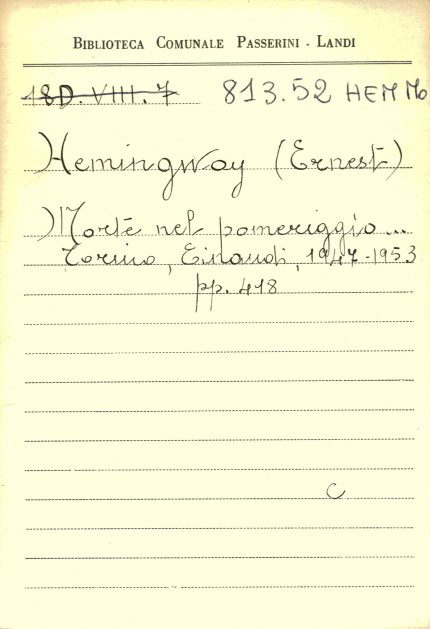 BIBLIOTECA COMUNALE PASSERINI - LANDI
18D.VIII.7 813.52 HEM Mo
Hemingway (Ernest)
Morte nel pomeriggio...
Torino, Einaudi, 1947-1953
pp. 418
C